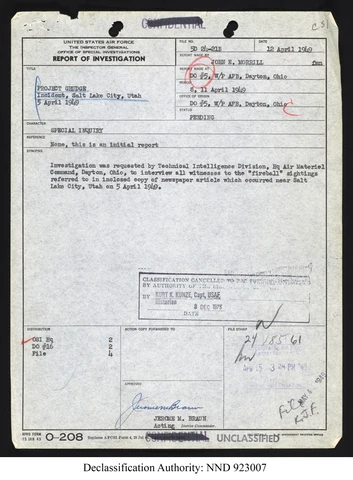 CONFIDENTIAL
UNITED STATES AIR FORCE
THE INSPECTOR GENERAL
OFFICE OF SPECIAL INVESTIGATIONS
REPORT OF INVESTIGATION
FILE NO.
5D 24-212
DATE
12 April 1949
REPORT MADE BY
JOHN E. MORRILL
TITLE
PROJECT GRUDGE
Incident, Salt Lake City, Utah
5 April 1949
REPORT MADE AT
DO #5, W/P AFB, Dayton, Ohio
PERIOD
8, 11 April 1949
DO #5, W/P AFB, Dayton, Ohio
STATUS
PENDING
CHARACTER
SPECIAL INQUIRY
REFERENCE
None, this is an initial report
SYNOPSIS
Investigation was requested by Technical Intelligence Division, Hq Air Materiel
Command, Dayton, Ohio, to interview all witnesses to the "fireball" sightings
referred to in inclosed copy of newspaper article which occurred near Salt
Lake City, Utah on 5 April 1949.
CLASSIFICATION CANCELLED
BY AUTHORITY OF
BY KURT K. KUNZE, Capt, USAF
DATE
DISTRIBUTION
OSI Hq 2
DO #16 2
File 4
ACTION COPY FORWARDED TO
FILE STAMP
24 185 61
APPROVED
JEROME M. BRAUN
Acting District Commander
0-208
UNCLASSIFIED
Declassification Authority: NND 923007